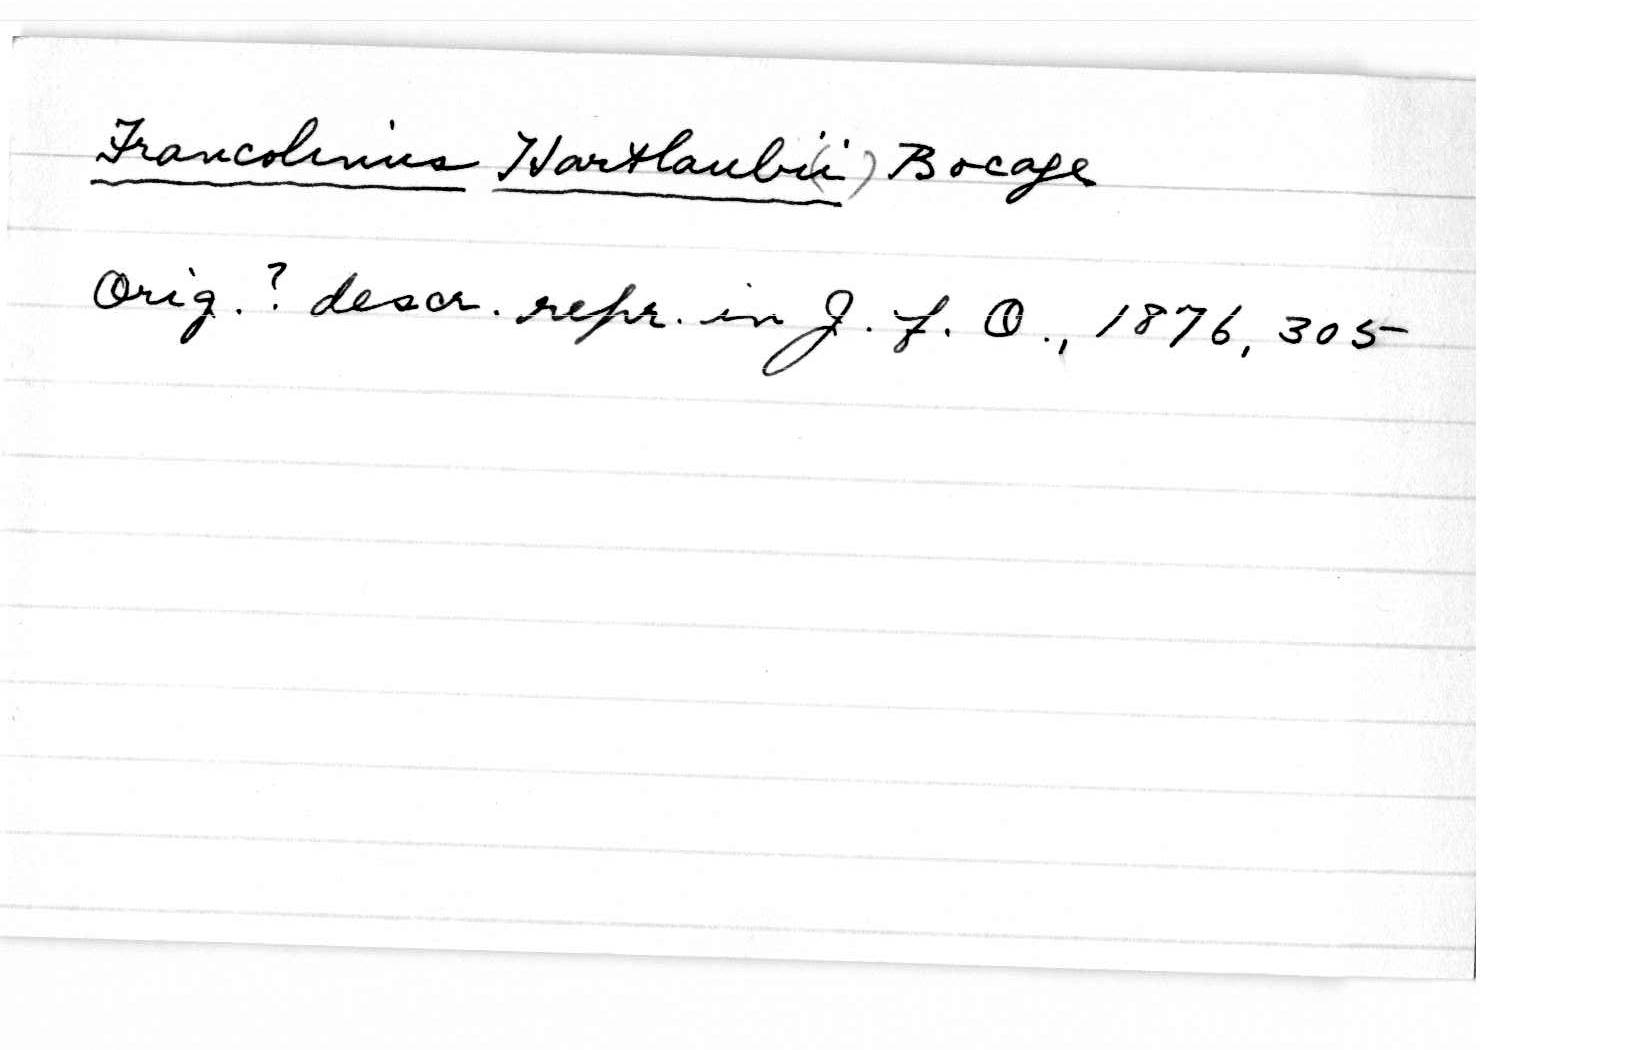 Francolinus Hartlaubi(i) Bocage
Orig.? descr. repr. in J. f. O., 1876, 305